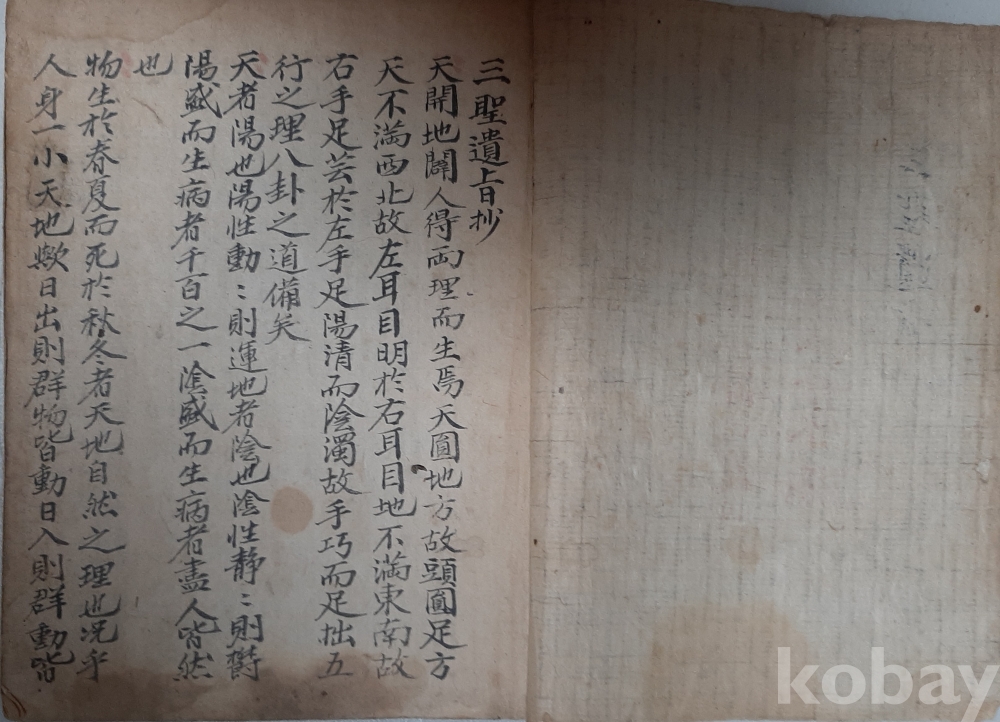 三聖遺旨抄
天開地闢人得両理而生焉天圓地方故頭圓足方
天不滿西北故左耳目明於右耳目地不滿東南故
右手足芸於左手足陽清而陰濁故手巧而足拙五
行之理八卦之道備矣
天者陽也陽性動〻則運地者陰也陰性静〻則欝
陽盛而生病者千百之一陰盛而生病者盡人皆然
也
物生於春夏而死於秋冬者天地自然之理也况乎
人身一小天地歟日出則群物皆動日入則群動皆
kobay